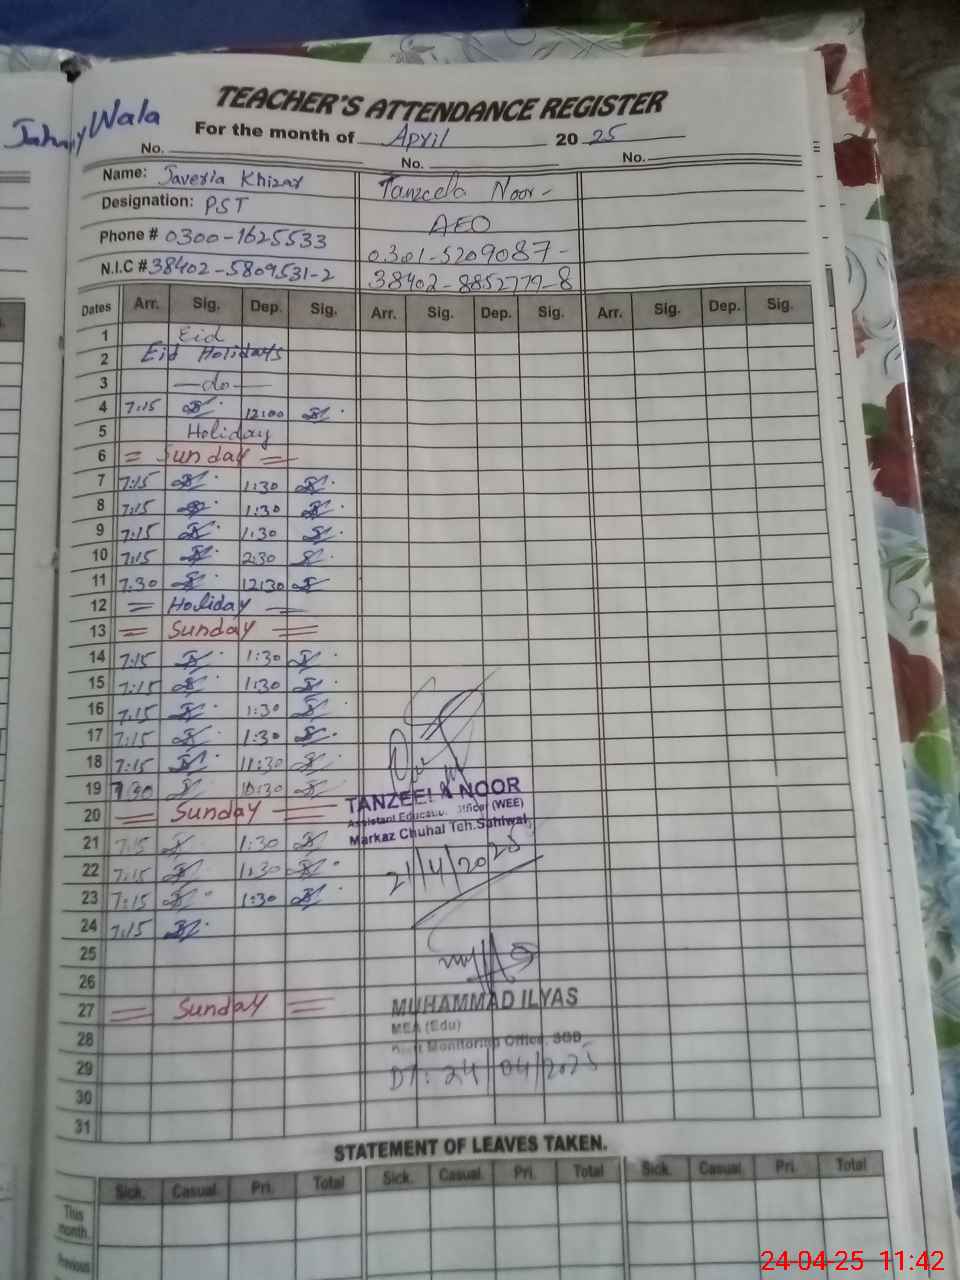 Wala
TEACHER'S ATTENDANCE REGISTER
For the month of April 2025
No. No. No.
Name: Javeria Khizar Tanzeela Noor-
Designation: PST AEO
Phone # 0300-1625533 0301-5209087-
N.I.C # 38402-5809531-2 38402-8852779-8
Dates Arr. Sig. Dep. Sig. Arr. Sig. Dep. Sig. Arr. Sig. Dep. Sig.
1 Eid
2 Eid Holidays
3 —do—
4 7:15 12:00
5 Holiday
6 = Sunday =
7 7:15 1:30
8 7:15 1:30
9 7:15 1:30
10 7:15 2:30
11 7:30 12:30
12 = Holiday =
13 = Sunday =
14 7:15 1:30
15 7:15 1:30
16 7:15 1:30
17 7:15 1:30
18 7:15 11:30
19 7:30 10:30
20 = Sunday =
21 7:15 1:30
22 7:15 1:30
23 7:15 1:30
24 7:15
25
26
27 = Sunday =
28
29
30
31
TANZEELA NOOR
Assistant Education Officer (WEE)
Markaz Chuhal Teh.Sahiwal
21/4/2025
MUHAMMAD ILYAS
MEA (Edu)
Monitoring Office, SGD
DT: 24/04/2025
STATEMENT OF LEAVES TAKEN.
Sick. Casual Pri. Total Sick. Casual Pri. Total Sick. Casual Pri. Total
This month.
Previous
24-04-25 11:42